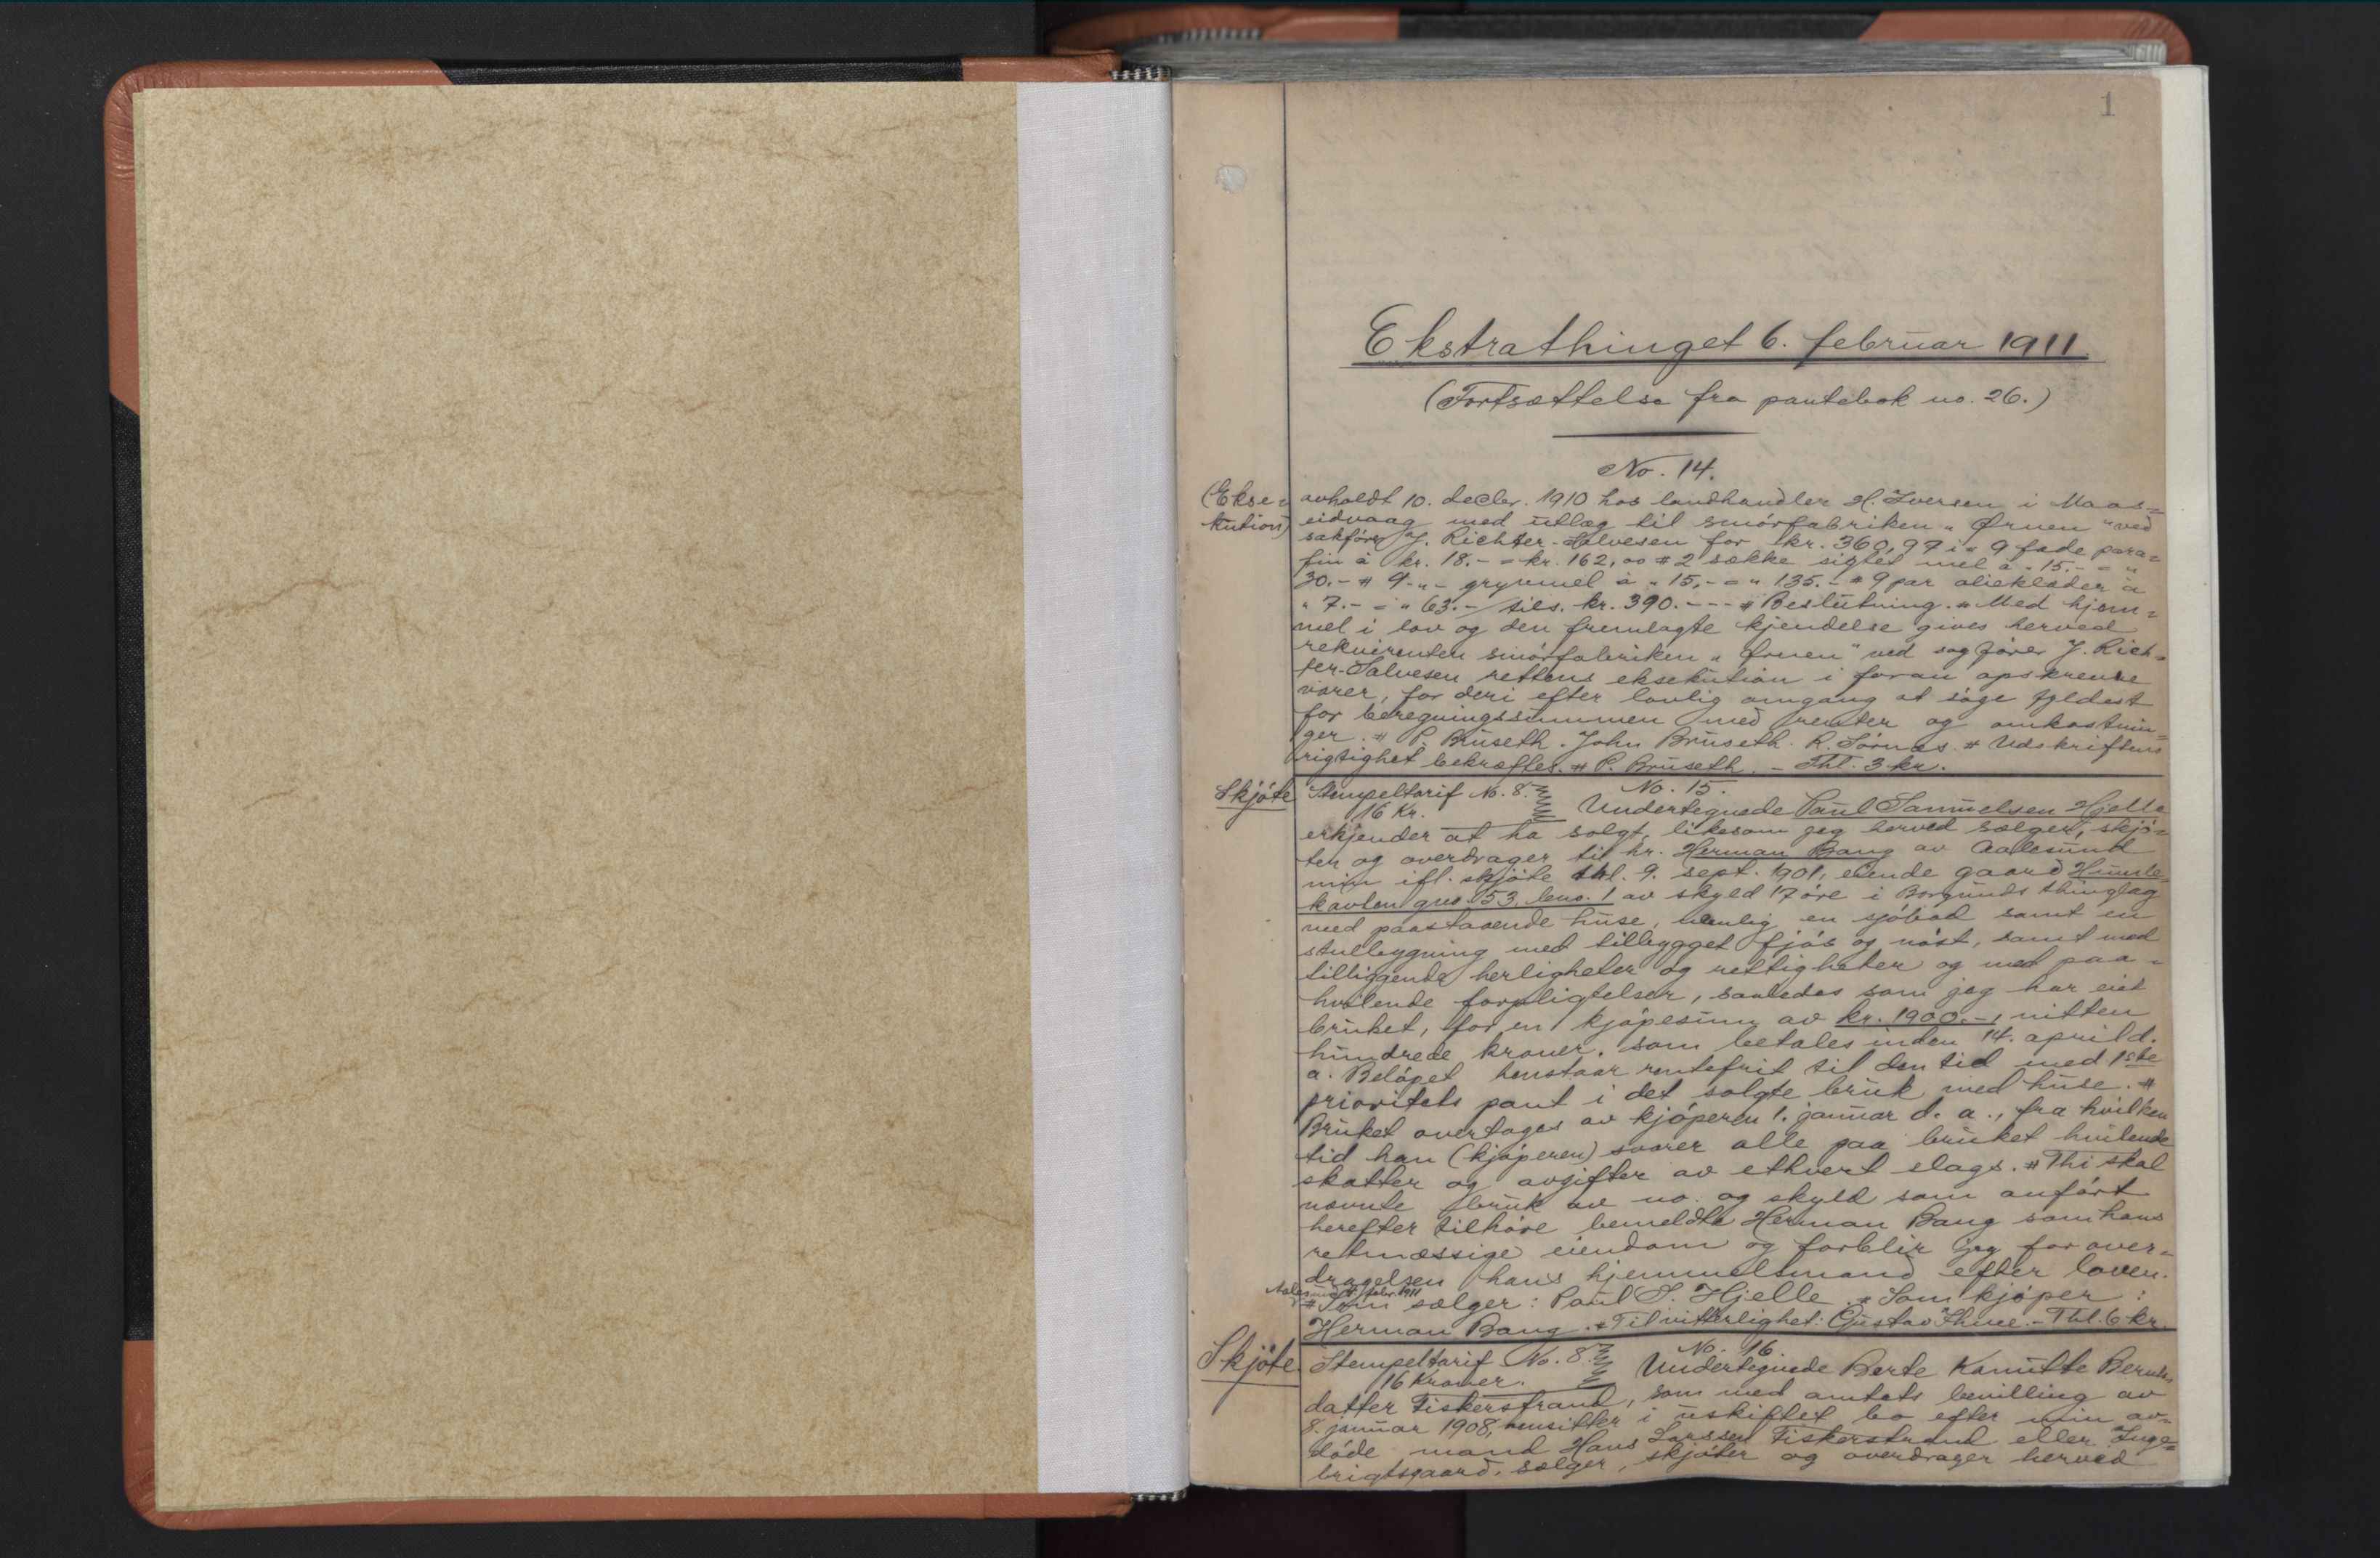 1
Ekstrathinget 6. februar 1911.
(Fortsættelse fra pantebok no. 26.)
No. 14.
(Ekse-
kution)
avholdt 10. decbr. 1910 hos landhandler H. Iversen i Maas-
eidvaag med utlæg til smörfabriken „Ørnen" ved
sakförer J. Richter-Salvesen for kr. 360,97 i „ 9 fade para-
fin à kr. 18.- = kr. 162,00 # 2 sække sigtet mel à „ 15.- = „
30.- # 9 -„- grynmel à „ 15,- = „ 135.- # 9 par olieklæder à
„ 7.- = „ 63.- / tils. kr. 390.--- # Beslutning. # Med hjem-
mel i lov og den fremlagte kjendelse gives herved
rekvirenten smörfabriken „Ørnen" ved sagförer J. Rich-
ter-Salvesen rettens eksekution i foran opskrevne
varer, for deri efter lovlig omgang at söge fyldest
for beregningssummen med renter og omkostnin-
ger. # P. Bruseth. John Bruseth. R. Sörnes. # Udskriftens
rigtighet bekræftes. # P. Bruseth. - Thl. 3 kr.
Skjöte
No. 15.
Stempeltarif No. 8.
16 Kr.
Undertegnede Paul Samuelsen Hjelle
erkjender at ha solgt, likesom jeg herved sælger, skjö-
ter og overdrager til hr. Herman Bang av Aalesund
min ifl. skjöte thl. 9. sept. 1901, eiende gaard Humle-
kavlen gno. 53, bno. 1 av skyld 17 öre i Borgunds thinglag
med paastaaende huse, nemlig en sjöbod samt en
stuebygning med tilbygget fjös og nöst, samt med
tilliggende herligheter og rettigheter og med paa-
hvilende forpligtelser, saaledes som jeg har eiet
bruket, for en kjöpesum av kr. 1900.-, nitten
hundrede kroner, som betales inden 14. april d.
a. Belöpet henstaar rentefrit til den tid med 1ste
prioritets pant i det solgte bruk med huse. #
Bruket overtages av kjöperen 1. januar d. a., fra hvilken
tid han (kjöperen) svarer alle paa bruket hvilende
skatter og avgifter av ethvert slags. # Thi skal
nævnte bruk av no. og skyld som anfört
herefter tilhöre bemeldte Herman Bang som hans
retmæssige eiendom og forblir jeg for over-
dragelsen hans hjemmelsmand efter loven.
Aalesund 4. febr. 1911
# Som sælger: Paul S. Hjelle. # Som kjöper:
Herman Bang. # Til vitterlighet: Gustav Thue. - Thl. 6 kr.
Skjöte.
No. 16.
Stempeltarif No. 8
16 Kroner.
Undertegnede Berte Karnitte Bernts
datter Fiskerstrand, som med amtets bevilling av
8. januar 1908, hensitter i uskiftet bo efter min av-
döde mand Hans Larssen Fiskerstrand eller Inge-
brigtsgaard, sælger, skjöter og overdrager herved